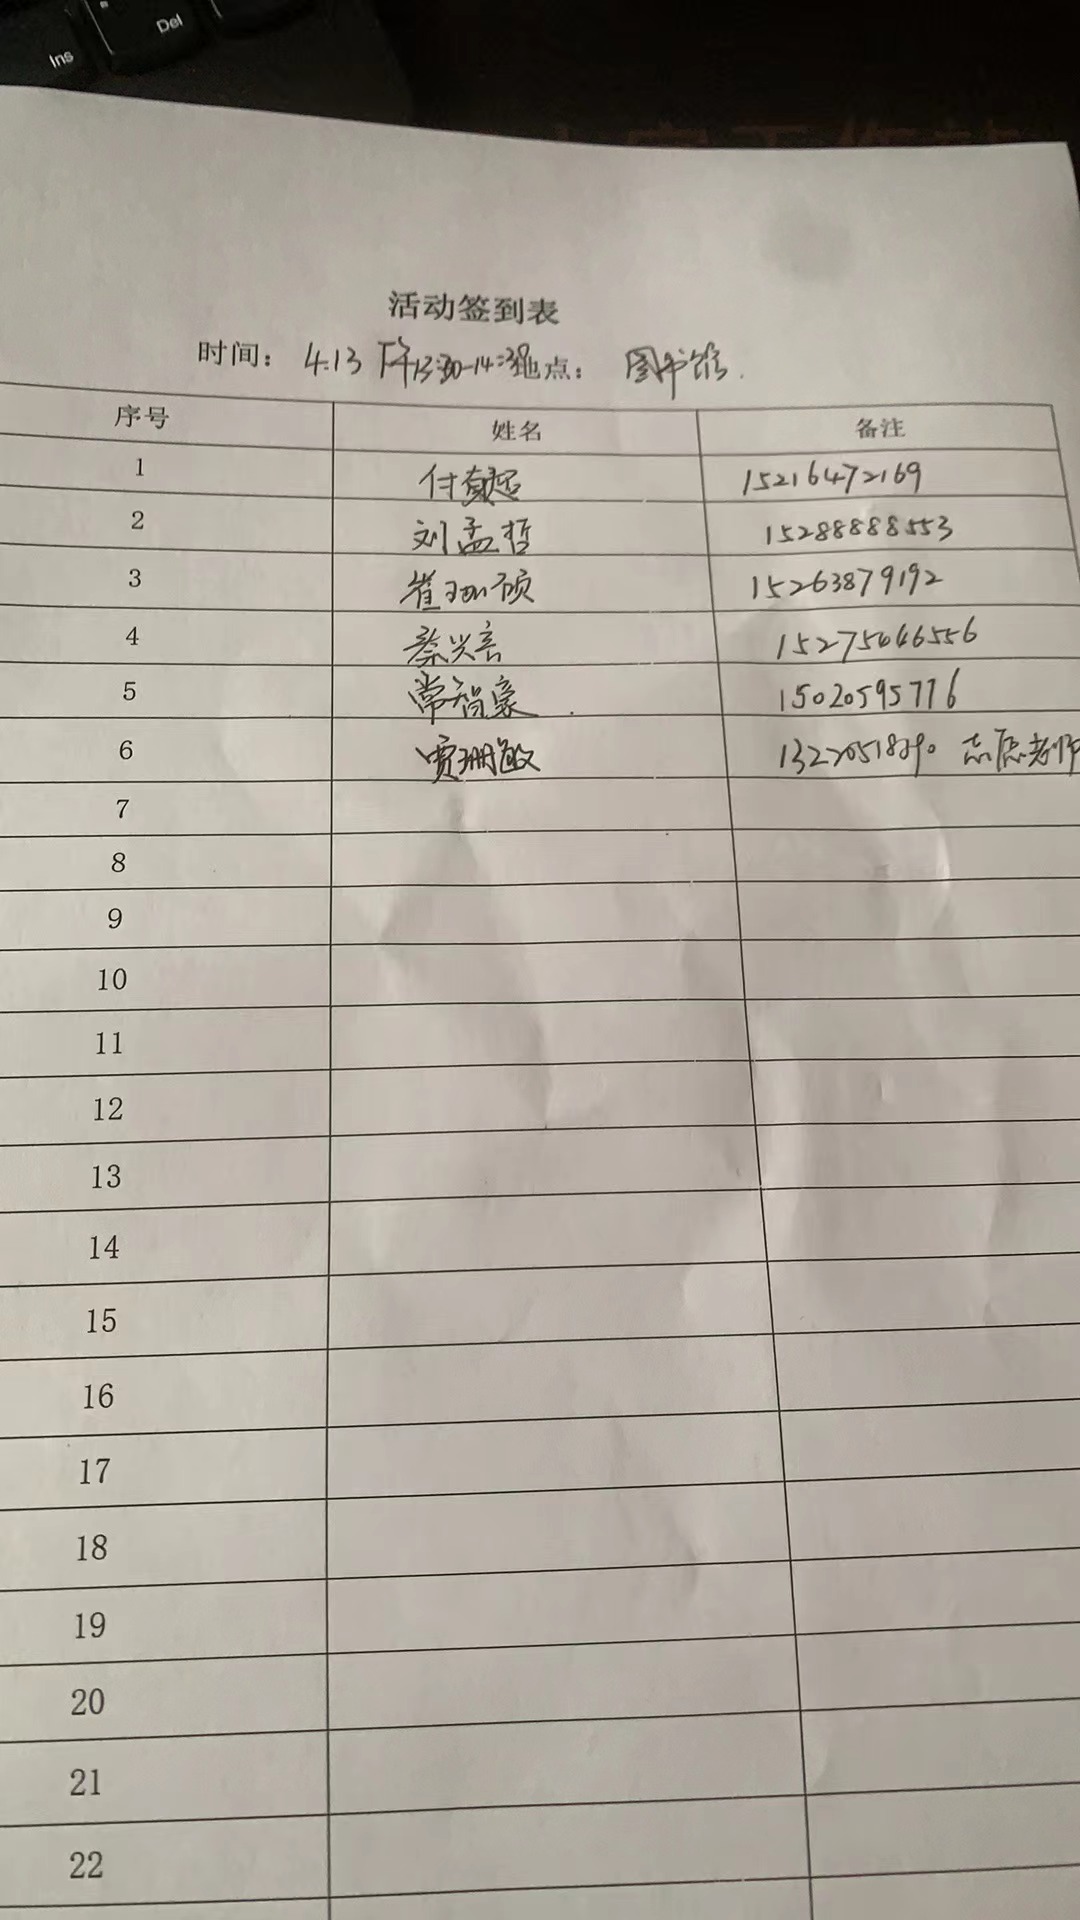 Ins
Del
活动签到表
时间: 4.13 下午13:30-14:30 地点: 图书馆.
序号 姓名 备注
1 付真超 15216472169
2 刘孟哲 15288888553
3 崔 硕 15263879192
4 蔡兴言 15275646556
5 常智豪 15020595776
6 贾珊敏 志愿老师
7
8
9
10
11
12
13
14
15
16
17
18
19
20
21
22